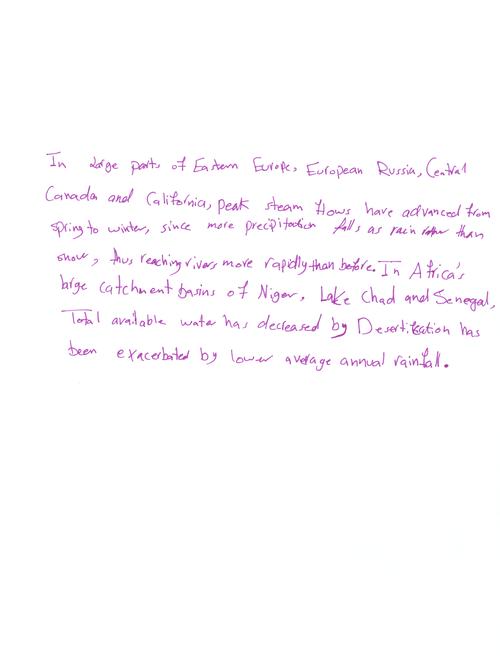 In large parts of Eastern Europe, European Russia, Central
Canada and California, peak steam flows have advanced from
spring to winter, since more precipitation falls as rain rather than
snow, thus reaching rivers more rapidly than before. In Africa's
large catchment basins of Niger, Lake Chad and Senegal,
Total available water has decreased by Desertification has
been exacerbated by lower average annual rainfall.